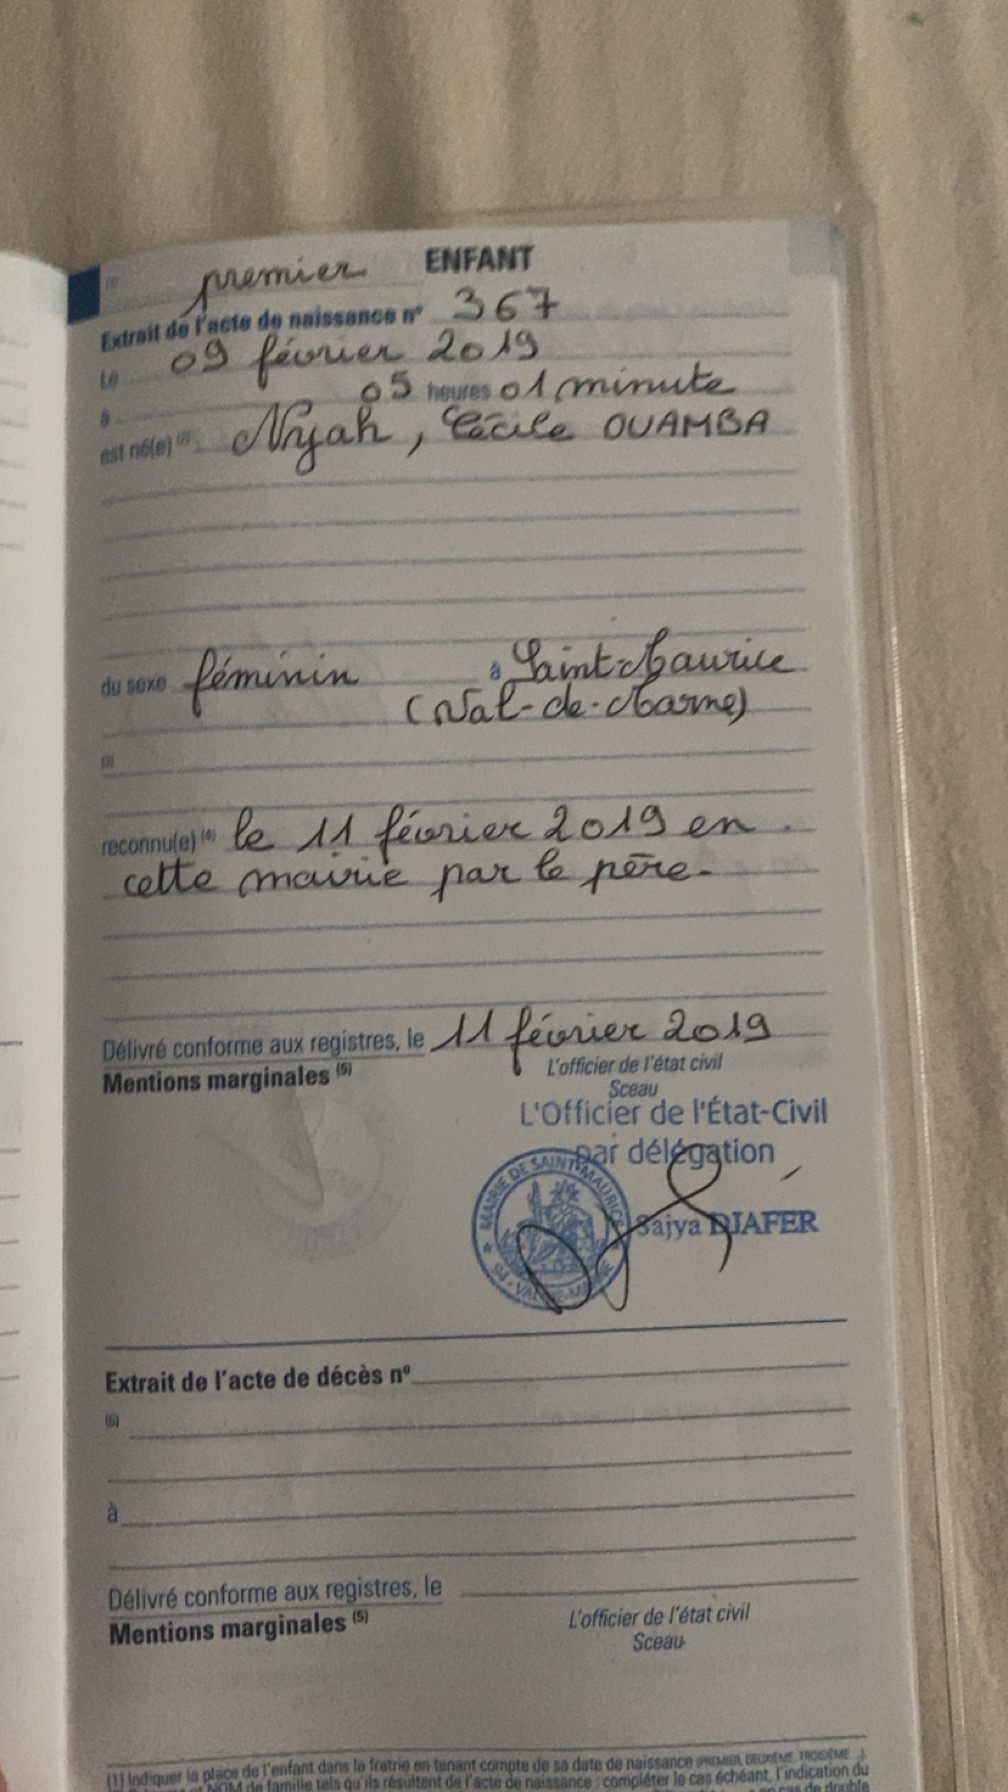 (1) premier ENFANT
Extrait de l'acte de naissance n° 367
Le 09 février 2019
à 05 heures 01 minute
est né(e) (2) Nyjah, Cécile OUAMBA
du sexe féminin à Saint-Maurice
(Val-de-Marne)
(3)
reconnu(e) (4) le 11 février 2019 en
cette mairie par le père.
Délivré conforme aux registres, le 11 février 2019
Mentions marginales (5) L'officier de l'état civil
Sceau
L'Officier de l'État-Civil
par délégation
MAIRIE DE SAINT-MAURICE
94 - VAL-DE-MARNE
Sajya DJAFER
Extrait de l'acte de décès n°
(6)
à
Délivré conforme aux registres, le
Mentions marginales (5) L'officier de l'état civil
Sceau
(1) Indiquer la place de l'enfant dans la fratrie en tenant compte de sa date de naissance (PREMIER, DEUXIÈME, TROISIÈME...).
et NOM de famille tels qu'ils résultent de l'acte de naissance : compléter le cas échéant, l'indication du
en cas de double